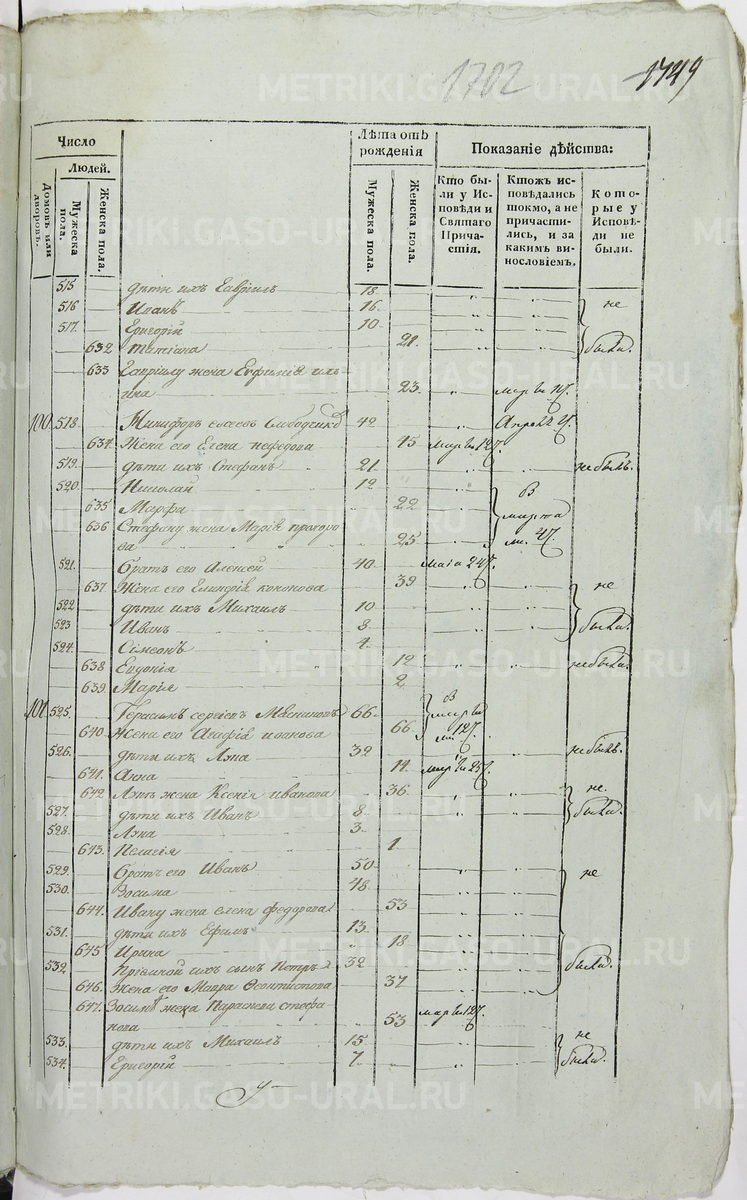 1702 1749
Число
Людей.
Домовъ или дворовъ.
Мужеска пола.
Женска пола.
Лѣта отъ рожденія
Мужеска пола.
Женска пола.
Показаніе дѣйства:
Кто бы-
ли у Ис-
повѣди и
Святаго
Прича-
стія.
Ктожъ ис-
повѣдались
токмо, а не
причасти-
лись, и за
какимъ ви-
нословіемъ.
Кото-
рые у
Исповѣ-
ди не
были.
515 дѣти ихъ Гавріилъ 18
516 Иванъ 16 не
517 Григорій 10
632 Татіана 21 были
633 Гаврiилу жена Евфимія иль-
ина 23 мар 12
100 518 Никифоръ 42 Апрѣля
634 Жена его Елена нефедова марта 12
519 дѣти ихъ Стефанъ 21 не былъ
520 Николай 12 В
635 Марфа 22 марта
636 Стефану жена Марія прохоро-
ва 25 4
521 братъ его Алексей 40 маія 24
637 Жена его кононова 39 не
522 дѣти ихъ Михаилъ 10
523 Иванъ 8 были
524 Симеонъ 4
638 Евдокія 12 не была
639 Марія 2
101 525 Герасимъ сергіевъ 66 В марта
640 Жена его Агафія иванова 66 12
526 дѣти ихъ 32 не былъ
641 Анна 14 мар 25
642 жена Ксенія иванова 36 не
527 дѣти ихъ Иванъ 8 были
528 3
643 Пелагія 1
529 братъ его Иванъ 50 не
530 Зосима 48
644 Ивану жена елена федорова 53
531 дѣти ихъ Ефимъ 13
645 Ирина 18
532 ихъ сынъ Петръ 32 были
646 Жена его Мавра Феоктистова 37
647 Зосимѣ жена Параскева стефа-
нова 53 марта 12
533 дѣти ихъ Михаилъ 15 не
534 Григорій 7 были
METRIKI.GASO-URAL.RU